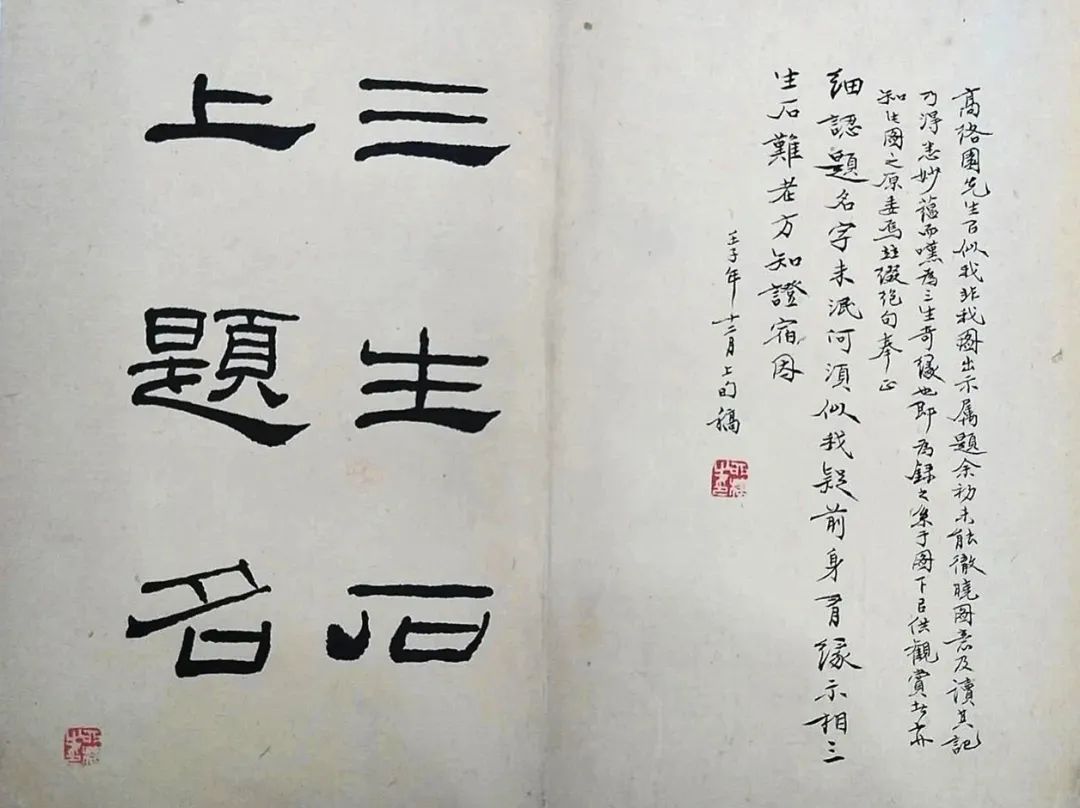 高络園先生以似我非我圖出示属題余初未能徹曉圖意及讀其記
乃得悉妙蕴而嘆為三生奇缘也即為録之系于圖下以供觀賞者亦
知此圖之原委焉并缀绝句奉正
細認題名字未泯何須似我疑前身有缘示相三
生石難老方知證宿因
壬子年十二月上旬稿
三生石
上題名